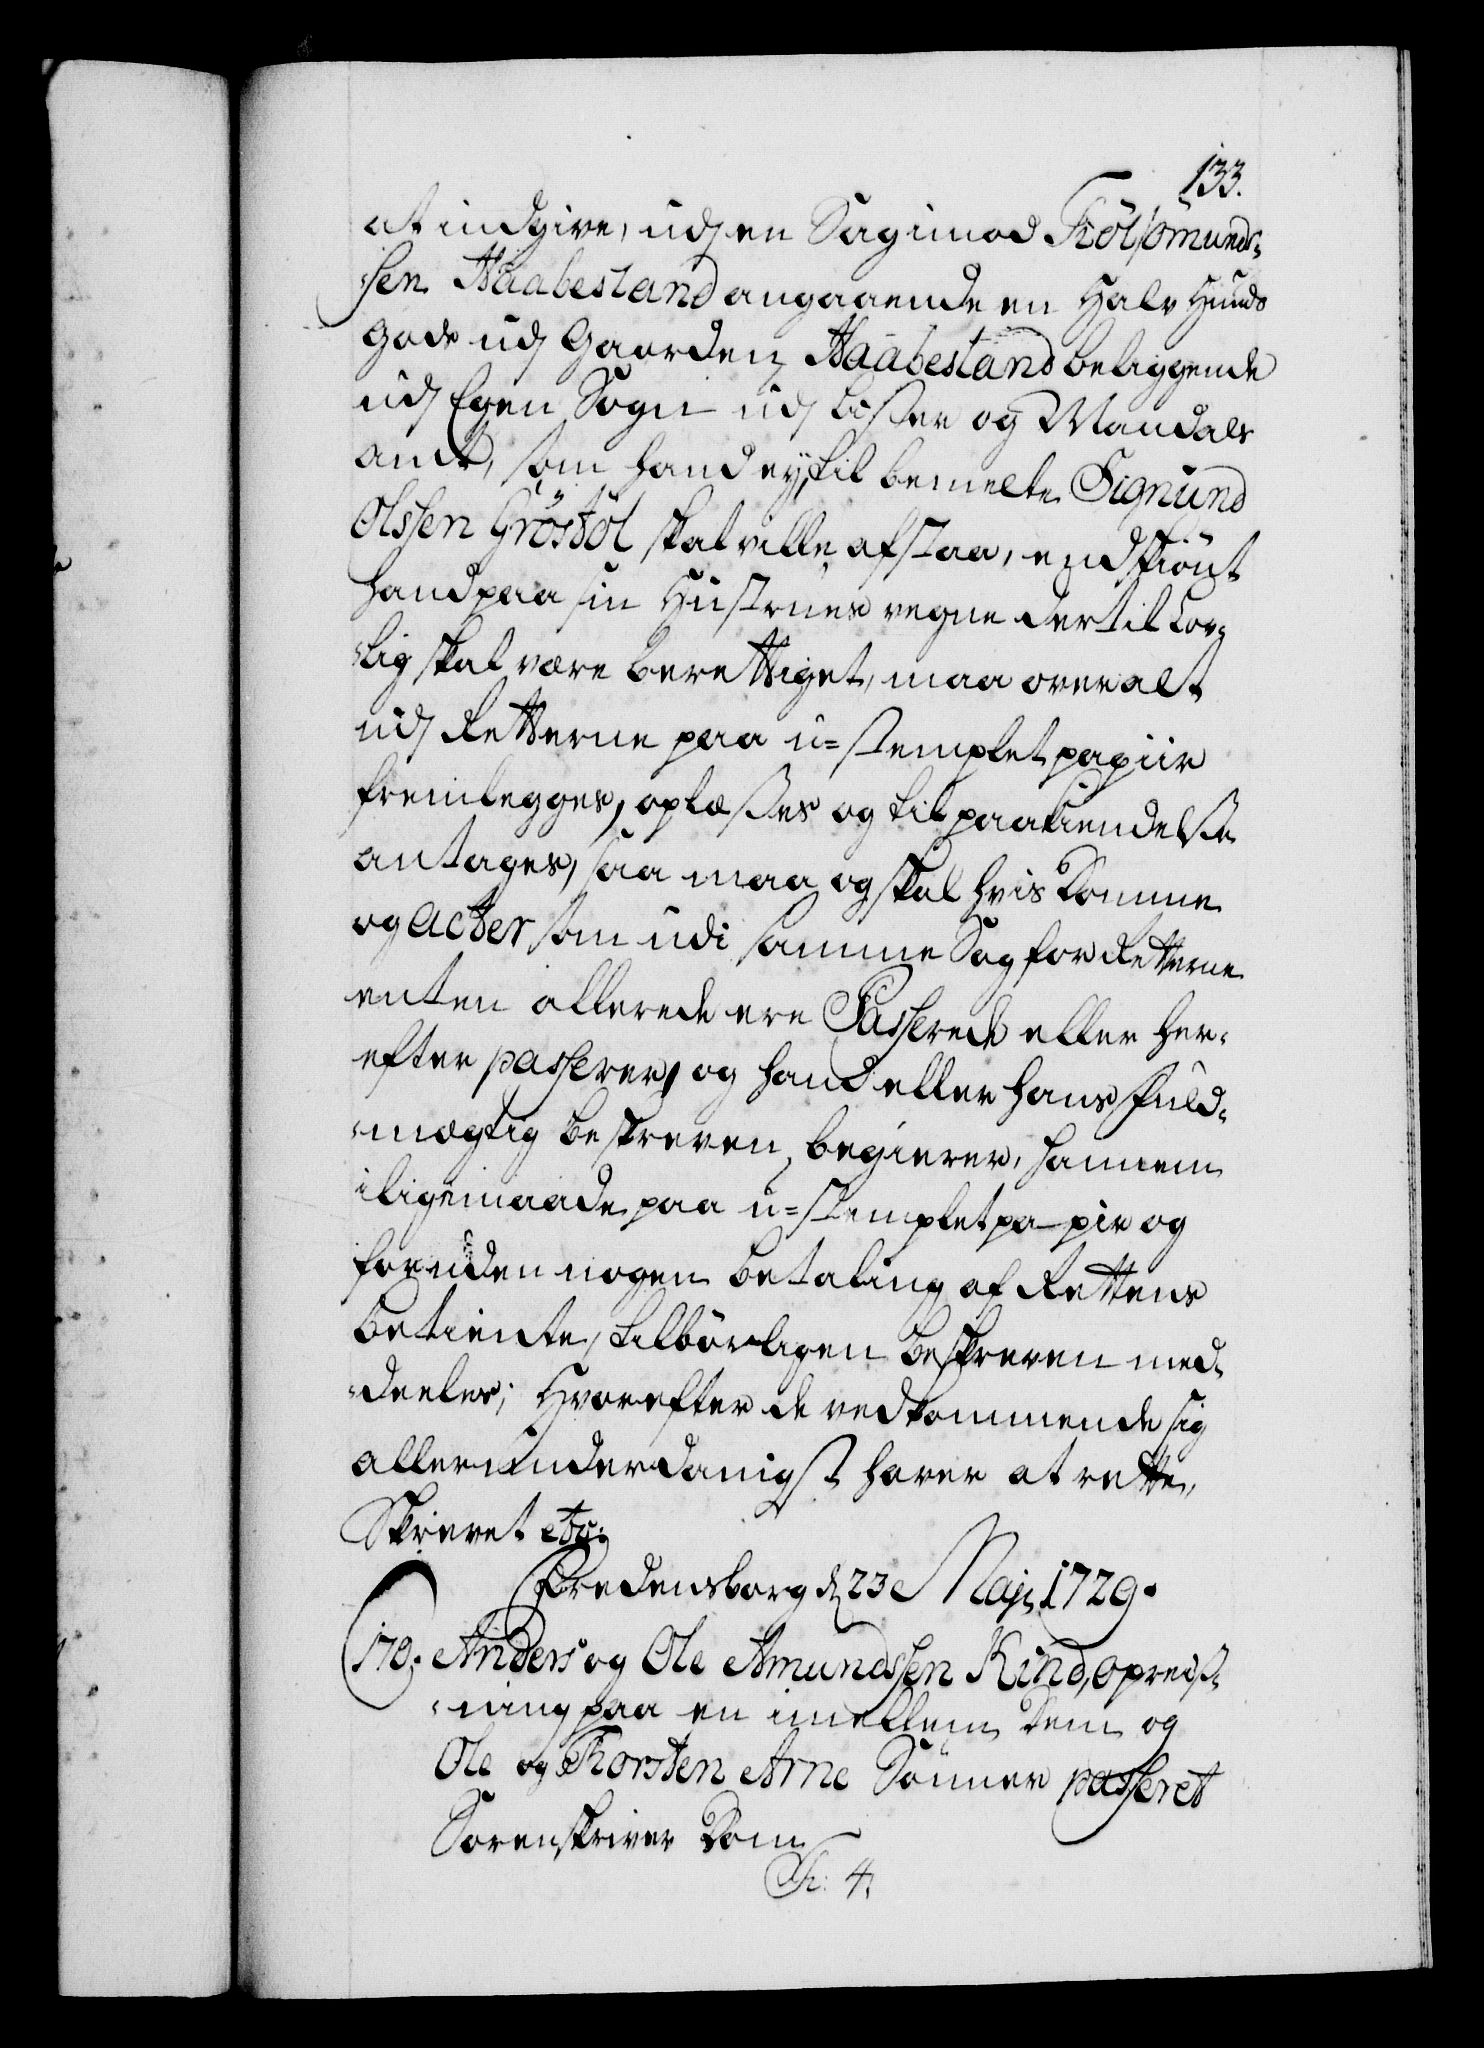 133.
at indgive, udj en Sag imod Tiöl Omunds¬
¬sen Haabestand angaaende en Halv Huuds
Gods udj Gaarden Haabestand beliggende
udj Egen Sogn udj Lister og Mandals
Amt, som hand ey til bemelte Sigund
Olssen Gröstöl skal ville afstaa, endskiönt
hand paa sin Hustrues vegne dertil Lov¬
¬lig skal være berettiget, maa overalt
udj Retterne paa u=stemplet papiir
fremlegges, oplæsses og til paakiendelse
antages, saa maa og skal hvis Domme
og Acter som udi samme Sag for Retterne
enten allerede ere Passerede eller her¬
efter passerer, og hand eller hans fuld¬
¬mægtig beskreven begierer, hannem
iligemaade paa u=stemplet papir og
foruden nogen betaling af Rettens
betiente, tilbörligen beskreven med¬
¬deeles; Hvorefter de vedkommende sig
allerunderdanigst haver at rette,
Skrevet etc:
Fredensborg d 23 Maj 1729.
170. Anders og Ole Amundssen Kind, Opreis¬
¬ning paa en imellem Dem og
Ole og Thorsten Arne Sönner passeret
Sorenskriver Dom
Sk: 4.